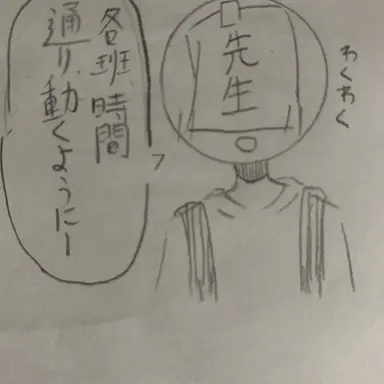 わくわく
先生
各班、時間
通り、動くようにー